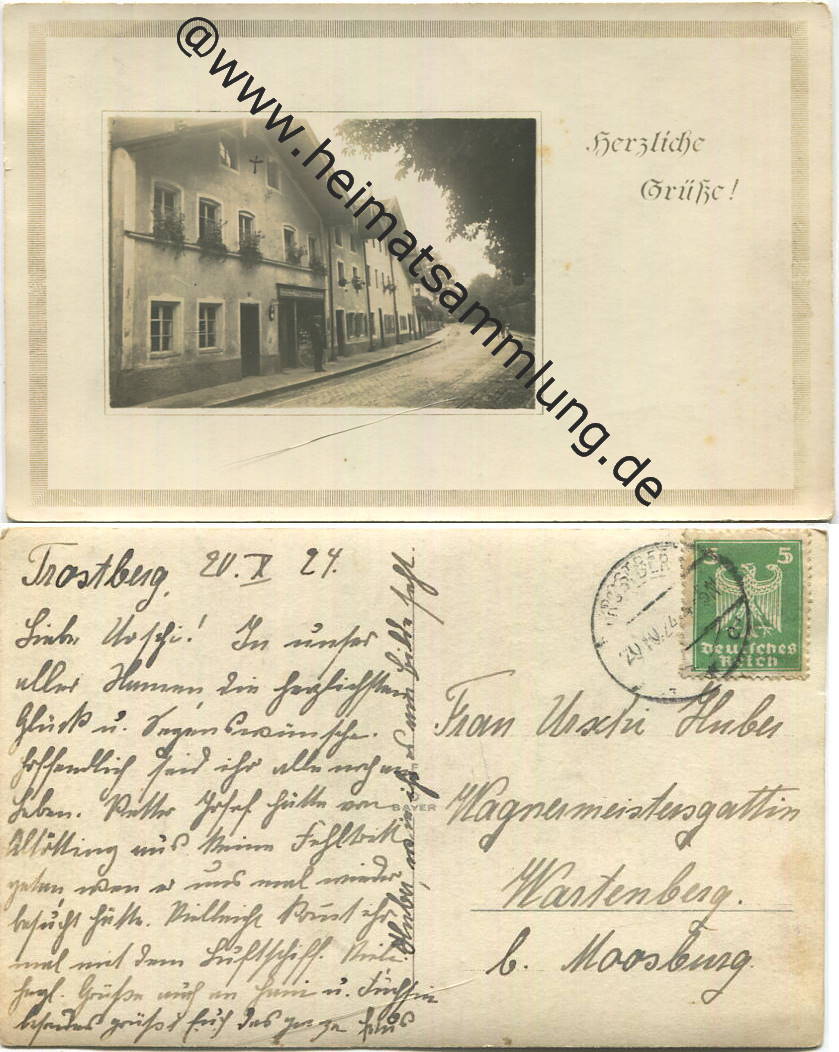 @www.heimatsammlung.de
Herzliche
Grüße!
Trostberg, 20. X 24.
Liebe Urschi! In unser
aller Namen die herzlichsten
Glück u. Segenswünsche.
Hoffendlich seid ihr alle noch am
Leben. Vetter Josef hätte von
Altötting aus keine Fehltritt
getan, wen er uns mal wieder
besucht hätte. Vielleicht kommt ihr
mal mit dem Luftschiff. Viele
hrzl. Grüße auch an Hani u.
grüßt Euch das ganze Haus
Huber, wie ihr es am Bilde seht.
BAYER
TROSTBERG
20.10.24
5 5
Deutsches
Reich
Frau Urschi Huber
Wagnermeistersgattin
Wartenberg.
b. Moosburg.